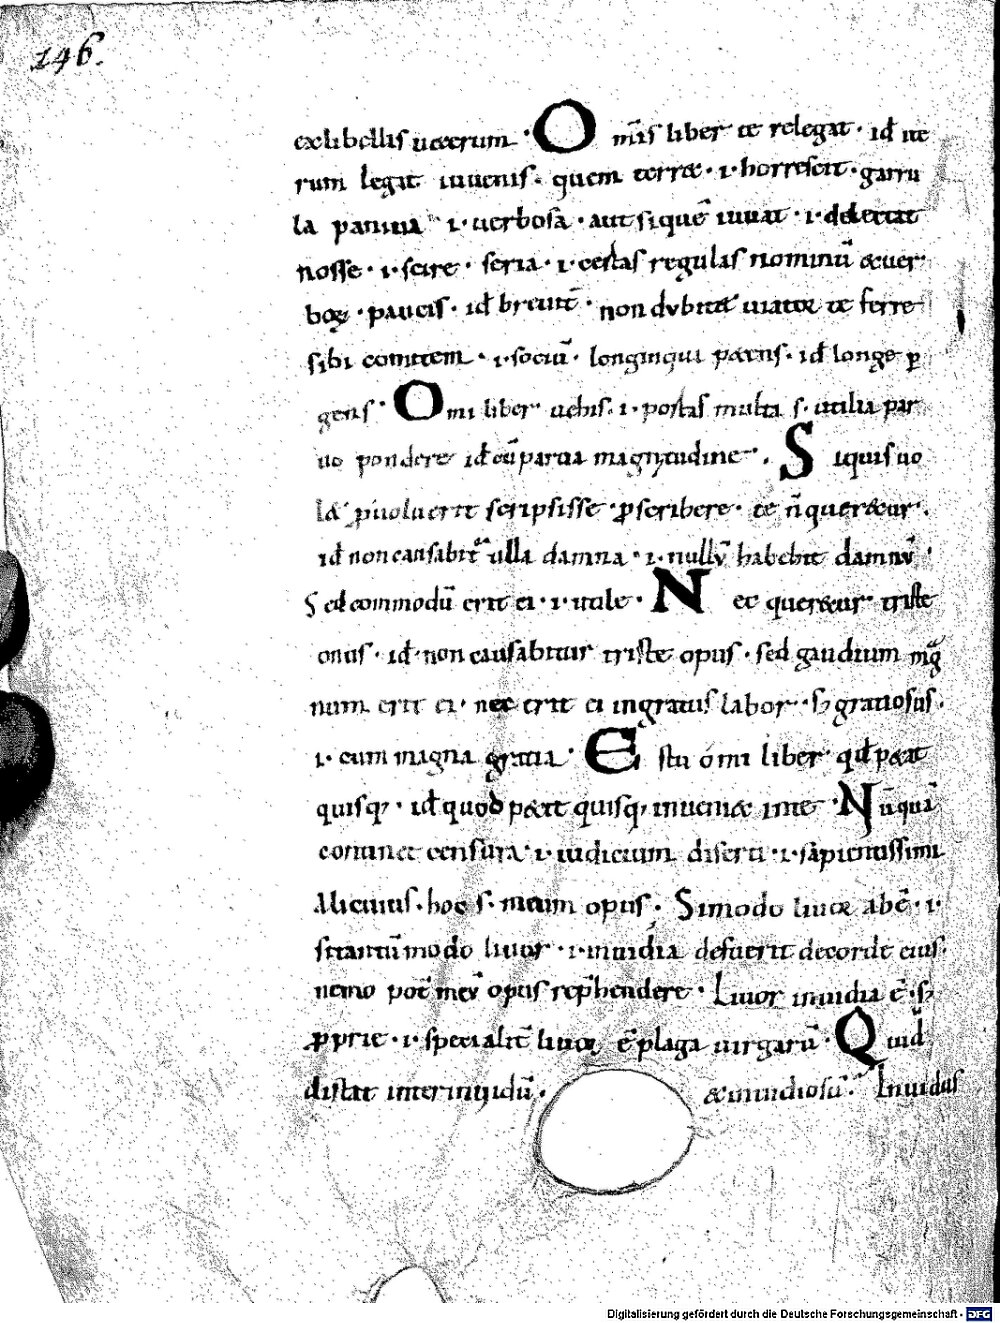 146.
exlibellis uecerum · O mīs liber te relegat · id ite
rum legat iuuenis · quem terrę · i · horrescit · garru
la pagina · i · uerbosa · aut siquē iuuat · i · delectat
nosse · i · scire · seria · i · certas regulas nominū & uer
boꝝ · paucis · id breuit̄ · non dubitat uiator te ferre
sibi comitem · i · sociū · longinqui patens · id longe ꝑ
gens · O mi liber uehis · i · portas multa s · utilia par
uo pondere id cū parua magnitudine · S iquis uo
l& scripsisse ꝑscribere · te n̄ quer&ur ·
id non causabit̄ ulla damna · i · nullū habebit damnū ·
Sed commodū erit ei · i · utile · N ec quer&ur triste
onus · id non causabitur triste opus · sed gaudium mag
num erit ei · nec erit ei ingratus labor · sꝫ gratiosus ·
i · cum magna gratia · E st ū ó mi liber qđ p&at
quisqꝫ · id quod p&at quisqꝫ inueniæ in te · Nūquā
contin& censura · i · iudicium diserti · i · sapientissimi
Alicuius · hoc s · meum opus · Si modo liuor abē · i ·
si tantūmodo liuor · i · inuidia defuerit de corde eius ·
nemo pot̄ meū opus rep̄hendere · Liuor inuidia ē · sꝫ
ꝓprie · i · specialit̄ liuor ē plaga uirgarū · Q uid
distat inter inuidū · & inuidiosū · Inuidus
Digitalisierung gefördert durch die Deutsche Forschungsgemeinschaft · DFG